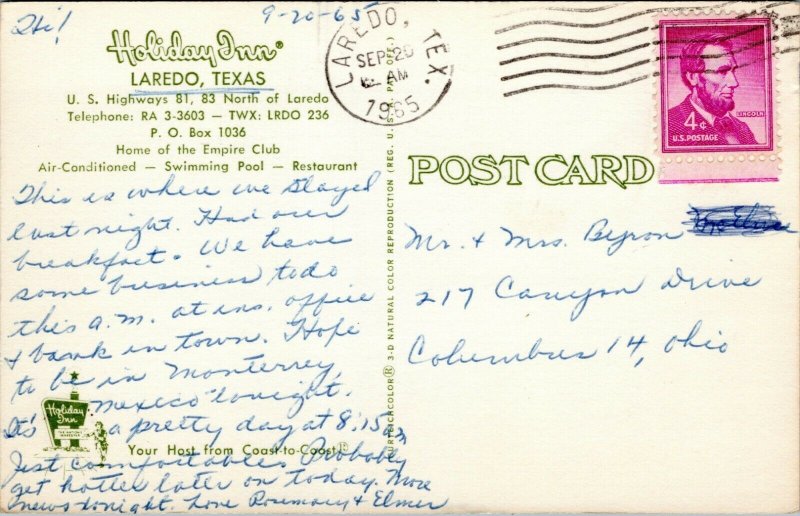 Hi! 9-20-65
Holiday Inn®
LAREDO, TEXAS
U. S. Highways 81, 83 North of Laredo
Telephone: RA 3-3603 — TWX: LRDO 236
P. O. Box 1036
Home of the Empire Club
Air-Conditioned — Swimming Pool — Restaurant
This is where we stayed
last night. Had our
breakfast. We have
some business to do
this a.m. at ins. office
& bank in town. Hope
to be in Monterrey,
Mexico tonight.
It's a pretty day at 8:15 am
Just comfortable. Probably
get hotter later on today. More
news tonight. Love Rosemary & Elmer
Holiday Inn
Your Host from Coast-to-Coast®
CURTEICHCOLOR® 3-D NATURAL COLOR REPRODUCTION (REG. U.S.A. PAT. OFF.)
LAREDO, TEX.
SEP 20
AM
1965
LINCOLN
4¢
U.S. POSTAGE
POST CARD
Mr. & Mrs. Byron
217 Canyon Drive
Columbus 14, Ohio